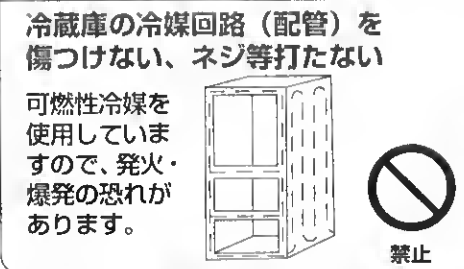 冷蔵庫の冷媒回路（配管）を
傷つけない、ネジ等打たない
可燃性冷媒を
使用していま
すので、発火・
爆発の恐れが
あります。
禁止